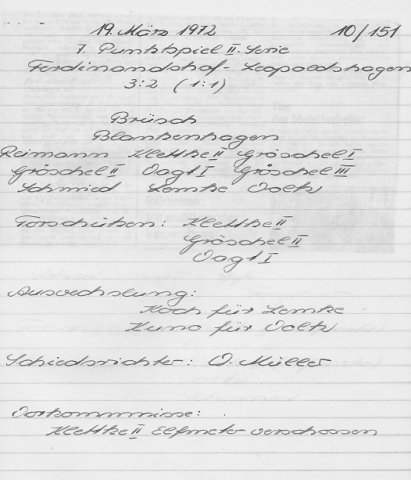 19. März 1972 10/151
7. Punktspiel II. Serie
Ferdinandshof - Leopoldshagen
3:2 (1:1)
Brüsch
Blankenhagen
Reimann Klettke II Gröschel I
Gröschel II Vogt I Gröschel III
Schmied Lemke Voltz
Torschützen: Klettke II
Gröschel II
Vogt I
Auswechslung:
Koch für Lemke
Kuno für Voltz
Schiedsrichter: O. Müller
Vorkommnisse:
Klettke II Elfmeter verschossen